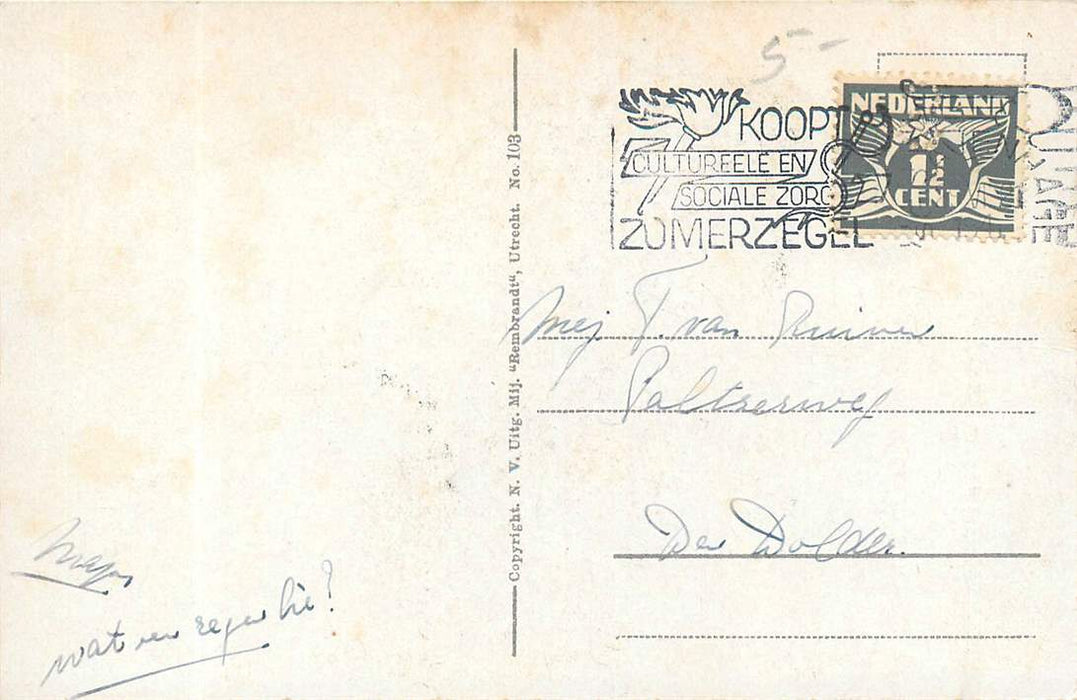 5-
KOOPT
CULTUREELE EN
SOCIALE ZORG
ZOMERZEGEL
NEDERLAND
1½
CENT
Copyright. N. V. Uitg. Mij. "Rembrandt", Utrecht. No. 103
Mej T. van
Paltzerweg
Den Dolder.
wat een